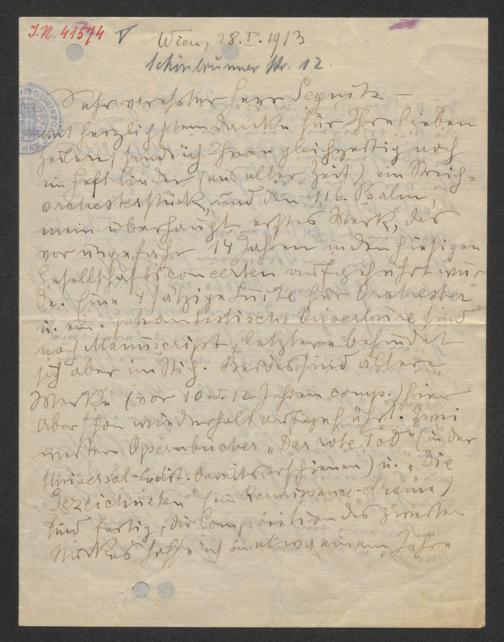 J.N. 41574
Wien, 28.I.1913
Schönbrunner Str. 12.
Sehr verehrter Herr Segnitz –
mit herzlichstem Danke für Ihre lieben
Zeilen, sende ich Ihnen gleichzeitig noch
ein Heft Lieder (aus alter Zeit) ein Streich-
orchesterstück, und den 116. Psalm,
mein überhaupt erstes Werk, das
vor ungefähr 14 Jahren in den hiesigen
Gesellschaftsconcerten aufgeführt wur-
de. Eine 4 sätzige Suite für Orchester
u. eine phantastische Ouverture sind
noch Manuscript, letztere befindet
sich aber im Stich. Beides sind ältere
Werke (vor 10 u. 12 Jahren comp.) hier
aber schon wiederholt aufgeführt. Zwei
weitere Opernbücher „Der rote Tod" (in der
Universal-Edit. bereits erschienen) u. „Die
Gezeichneten" (ein Renaissance-Drama)
sind fertig, die Composition des zweiten
Werkes hoffe ich in etwa einem Jahre